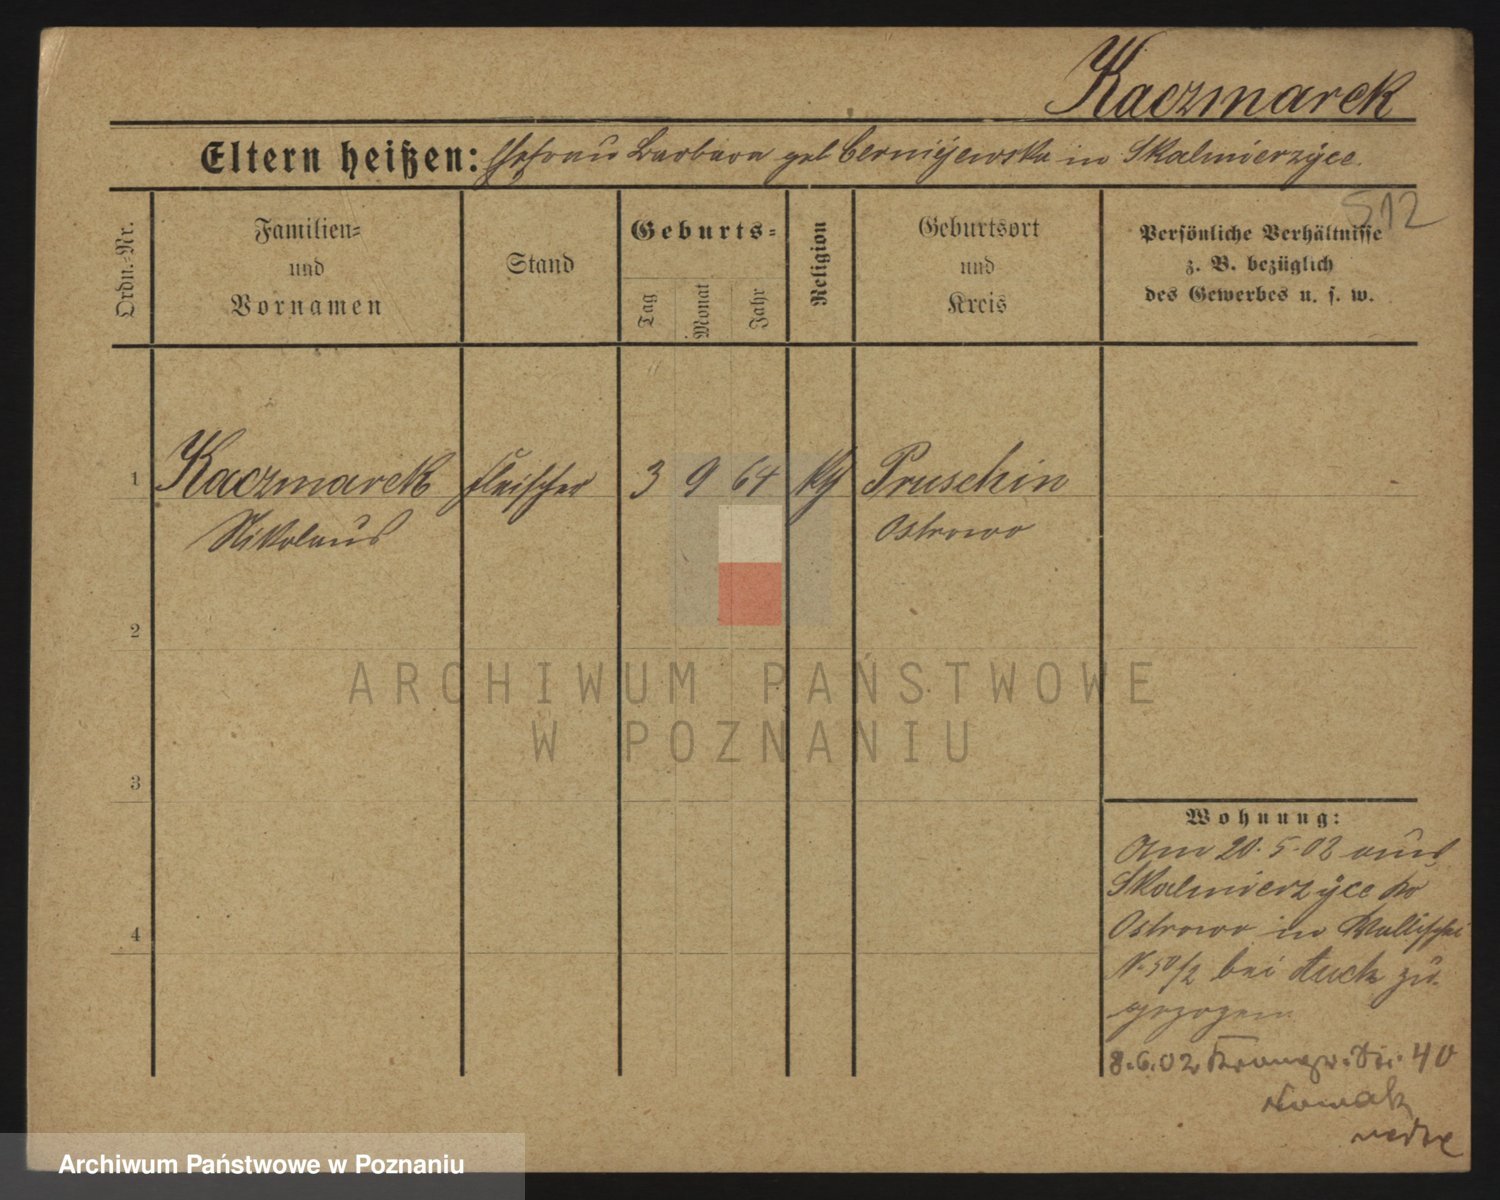 Kaczmarek
Eltern heißen: Ehefrau Barbara geb Cerniejewska in Skalmierzÿce.
512
Ordn.-Nr.
Familien-
und
Vornamen
Stand
Geburts-
Tag
Monat
Jahr
Religion
Geburtsort
und
Kreis
Persönliche Verhältnisse
z. B. bezüglich
des Gewerbes u. s. w.
1 Kaczmarek Fleischer 3 9 64 kg Pruschin
Nikolaus Ostrowo
2
ARCHIWUM PAŃSTWOWE
W POZNANIU
3
Wohnung:
Am 20. 5. 02 aus
Skalmierzÿce Kr
Ostrowo in Wallischei
N. 50/2 bei zu-
gezogen
4
8.6.02 40
Nowak
Archiwum Państwowe w Poznaniu